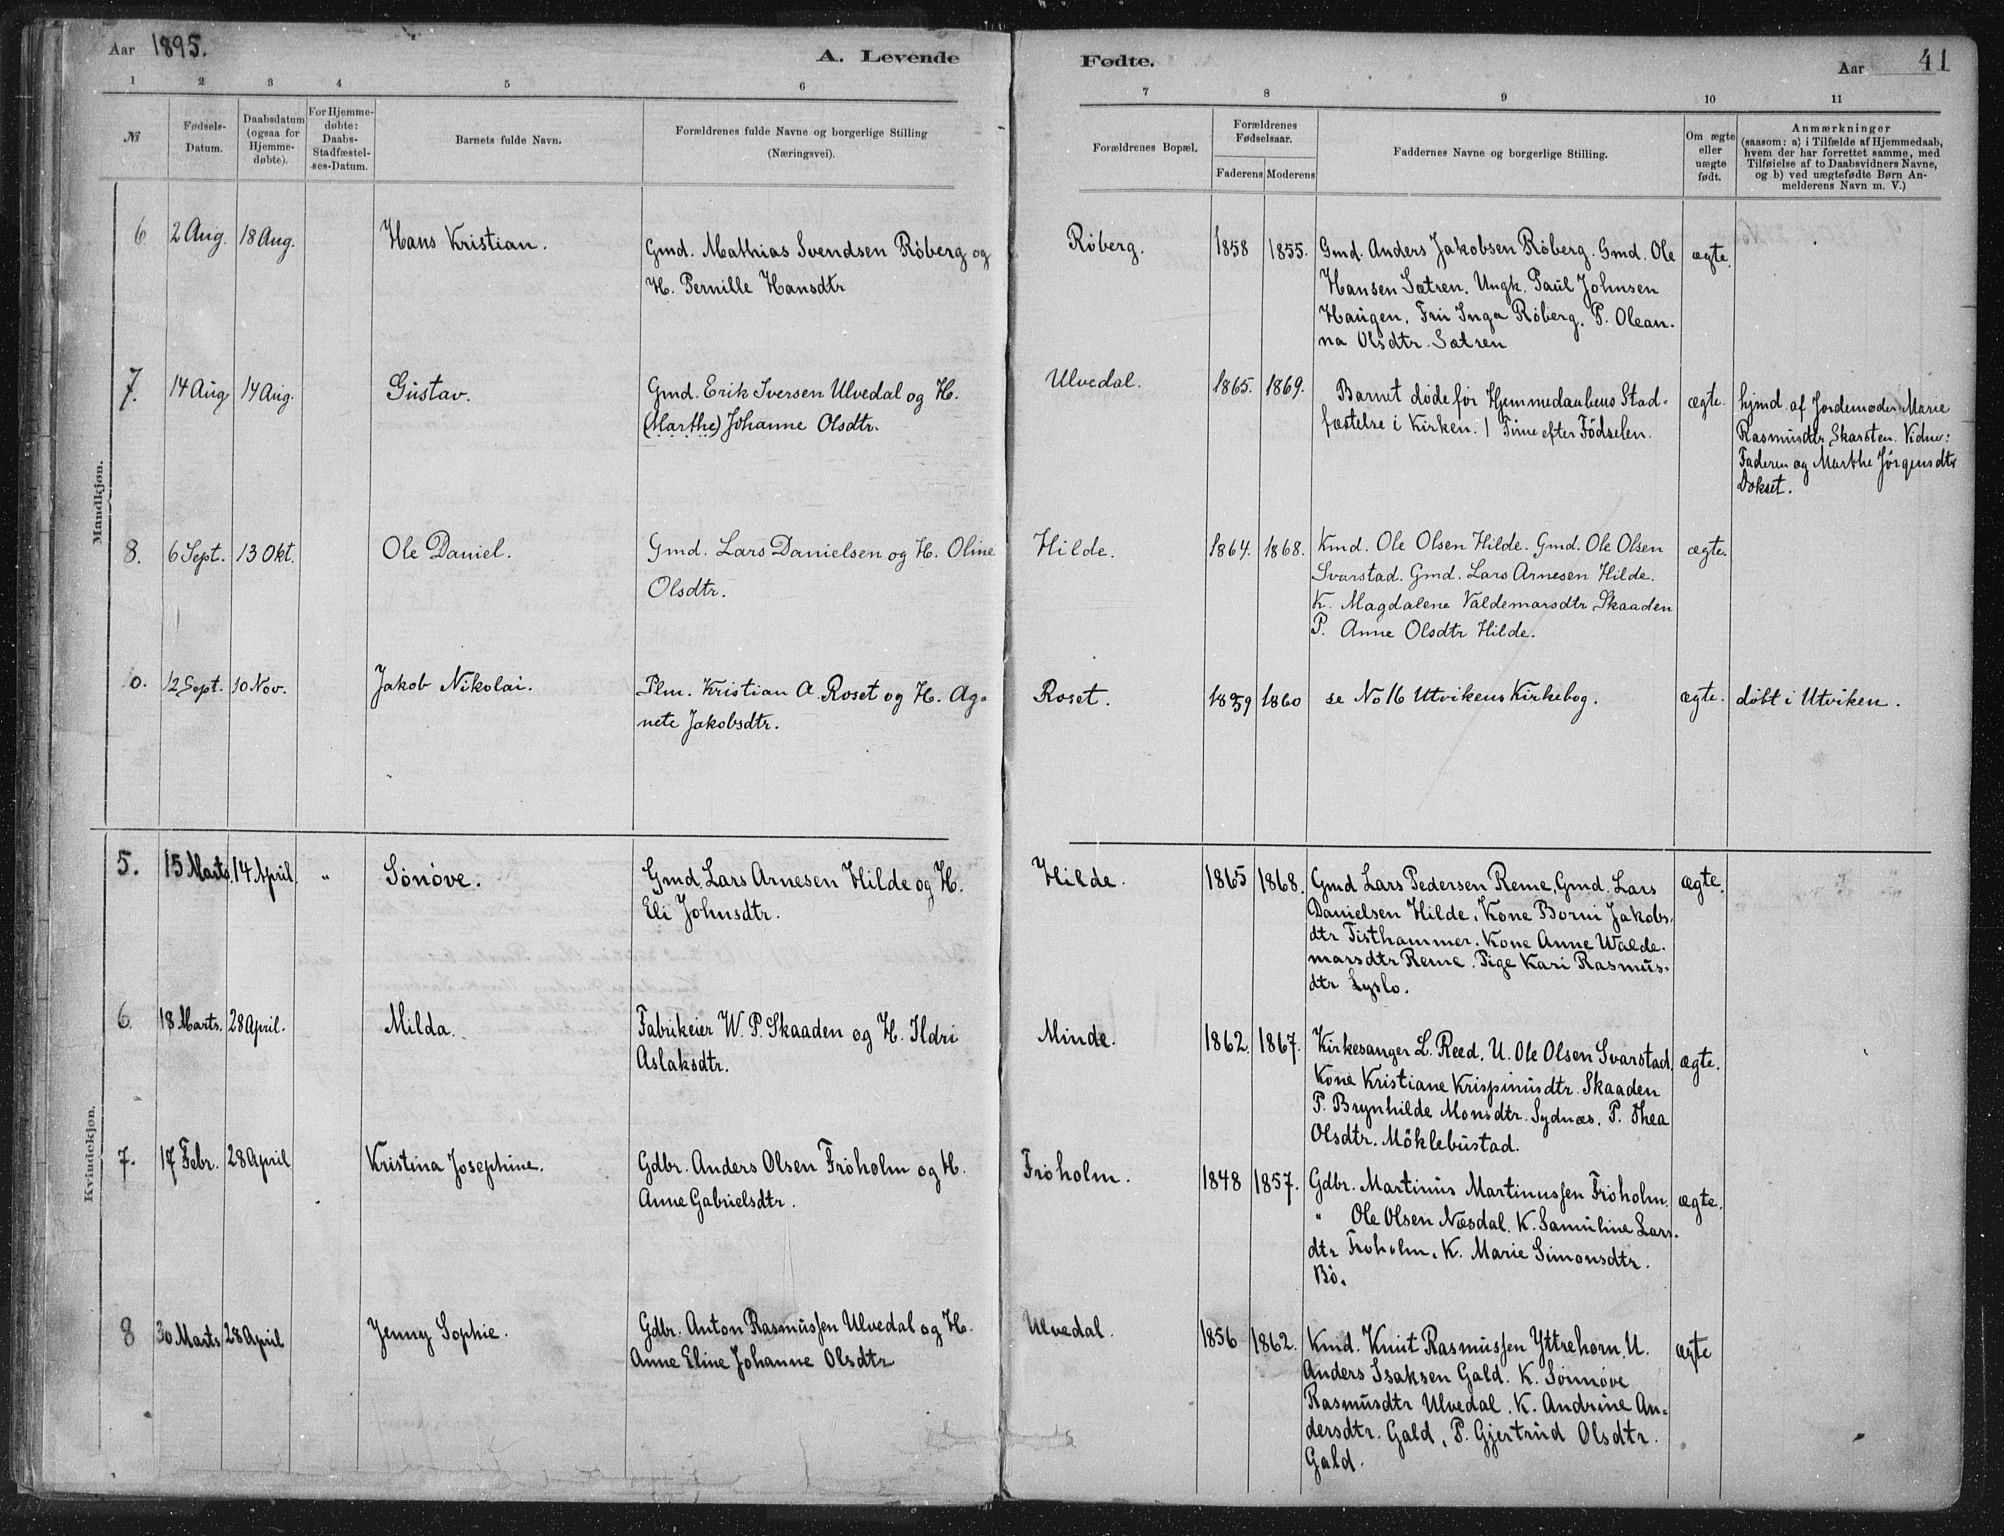 Aar 1895.
A. Levende Fødte.
Aar 41
1 2 3 4 5 6 7 8 9 10 11
№
Fødsels-
Datum.
Daabsdatum
(ogsaa for
Hjemme-
døbte).
For Hjemme-
døbte:
Daabs-
Stadfæstel-
ses-Datum.
Barnets fulde Navn.
Forældrenes fulde Navne og borgerlige Stilling
(Næringsvei).
Forældrenes Bopæl.
Forældrenes
Fødselsaar.
Faderens Moderens
Faddernes Navne og borgerlige Stilling.
Om ægte
eller
uægte
født.
Anmærkninger
(saasom: a) i Tilfælde af Hjemmedaab,
hvem der har forrettet samme, med
Tilføielse af to Daabsvidners Navne,
og b) ved uægtefødte Børn An-
melderens Navn m. V.)
Mandkjøn.
6 2 Aug. 18 Aug. Hans Kristian.
Gmd. Mathias Svendsen Röberg og
H. Pernille Hansdtr
Röberg. 1858 1855.
Gmd. Anders Jakobsen Röberg. Gmd. Ole
Hansen Sætren. Ungk. Paul Johnsen
Haugen. Fru Inga Röberg. P. Olean-
na Olsdtr. Sætren
ægte.
7. 14 Aug. 14 Aug. Gustav.
Gmd. Erik Iversen Ulvedal og H.
(Marthe) Johanne Olsdtr.
Ulvedal. 1865. 1869.
Barnet döde för Hjemmedaabens Stad-
fæstelse i Kirken. 1 Time efter Fødselen.
ægte.
hjmd. af Jordemoder Marie
Rasmusdtr Skarsten. Vidner:
Faderen og Marthe Jörgensdtr
Dokset.
8. 6 Sept. 13 Okt. Ole Daniel.
Gmd. Lars Danielsen og H. Oline
Olsdtr.
Hilde. 1864. 1868.
Kmd. Ole Olsen Hilde. Gmd. Ole Olsen
Svarstad. Gmd. Lars Arnesen Hilde.
K. Magdalene Valdemarsdtr Skaaden
P. Anne Olsdtr Hilde.
ægte.
0. 12 Sept. 10 Nov. Jakob Nikolai.
Plm. Kristian A. Roset og H. Ag-
nete Jakobsdtr.
Roset. 1859 1860
se No 16 Utvikens Kirkebog.
ægte. döbt i Utviken.
Kvindekjøn.
5. 15 Marts. 14 April. " Sönöve.
Gmd. Lars Arnesen Hilde og H.
Eli Johnsdtr.
Hilde. 1865 1868.
Gmd Lars Pedersen Reme, Gmd. Lars
Danielsen Hilde, Kone Borni Jakobs-
dtr Tisthammer. Kone Anne Walde-
marsdtr Reme. Pige Kari Rasmus-
dtr Lyslo.
ægte.
6. 18 Marts. 28 April. Milda.
Fabrikeier W. P. Skaaden og H. Ildri
Aslaksdtr.
Minde. 1862. 1867.
Kirkesanger L. Reed. U. Ole Olsen Svarstad.
Kone Kristiane Krispinusdtr. Skaaden
P. Brynhilde Monsdtr. Sydnæs. P. Thea
Olsdtr. Möklebustad.
ægte.
7. 17 Febr. 28 April Kristina Josephine.
Gdbr. Anders Olsen Fröholm og H.
Anne Gabrielsdtr.
Fröholm. 1848 1857.
Gdbr. Martinus Martinussen Fröholm.
" Ole Olsen Næsdal. K. Samuline Lars-
dtr Fröholm. K. Marie Simonsdtr.
Bö.
ægte.
8 30 Marts 28 April Jenny Sophie.
Gdbr. Anton Rasmussen Ulvedal og H.
Anne Eline Johanne Olsdtr
Ulvedal. 1856 1862.
Kmd. Knut Rasmussen Yttrehorn. U.
Anders Isaksen Gald. K. Sönnöve
Rasmusdtr Ulvedal. K. Andrine An-
dersdtr. Gald, P. Gjertrud Olsdtr.
Gald.
ægte